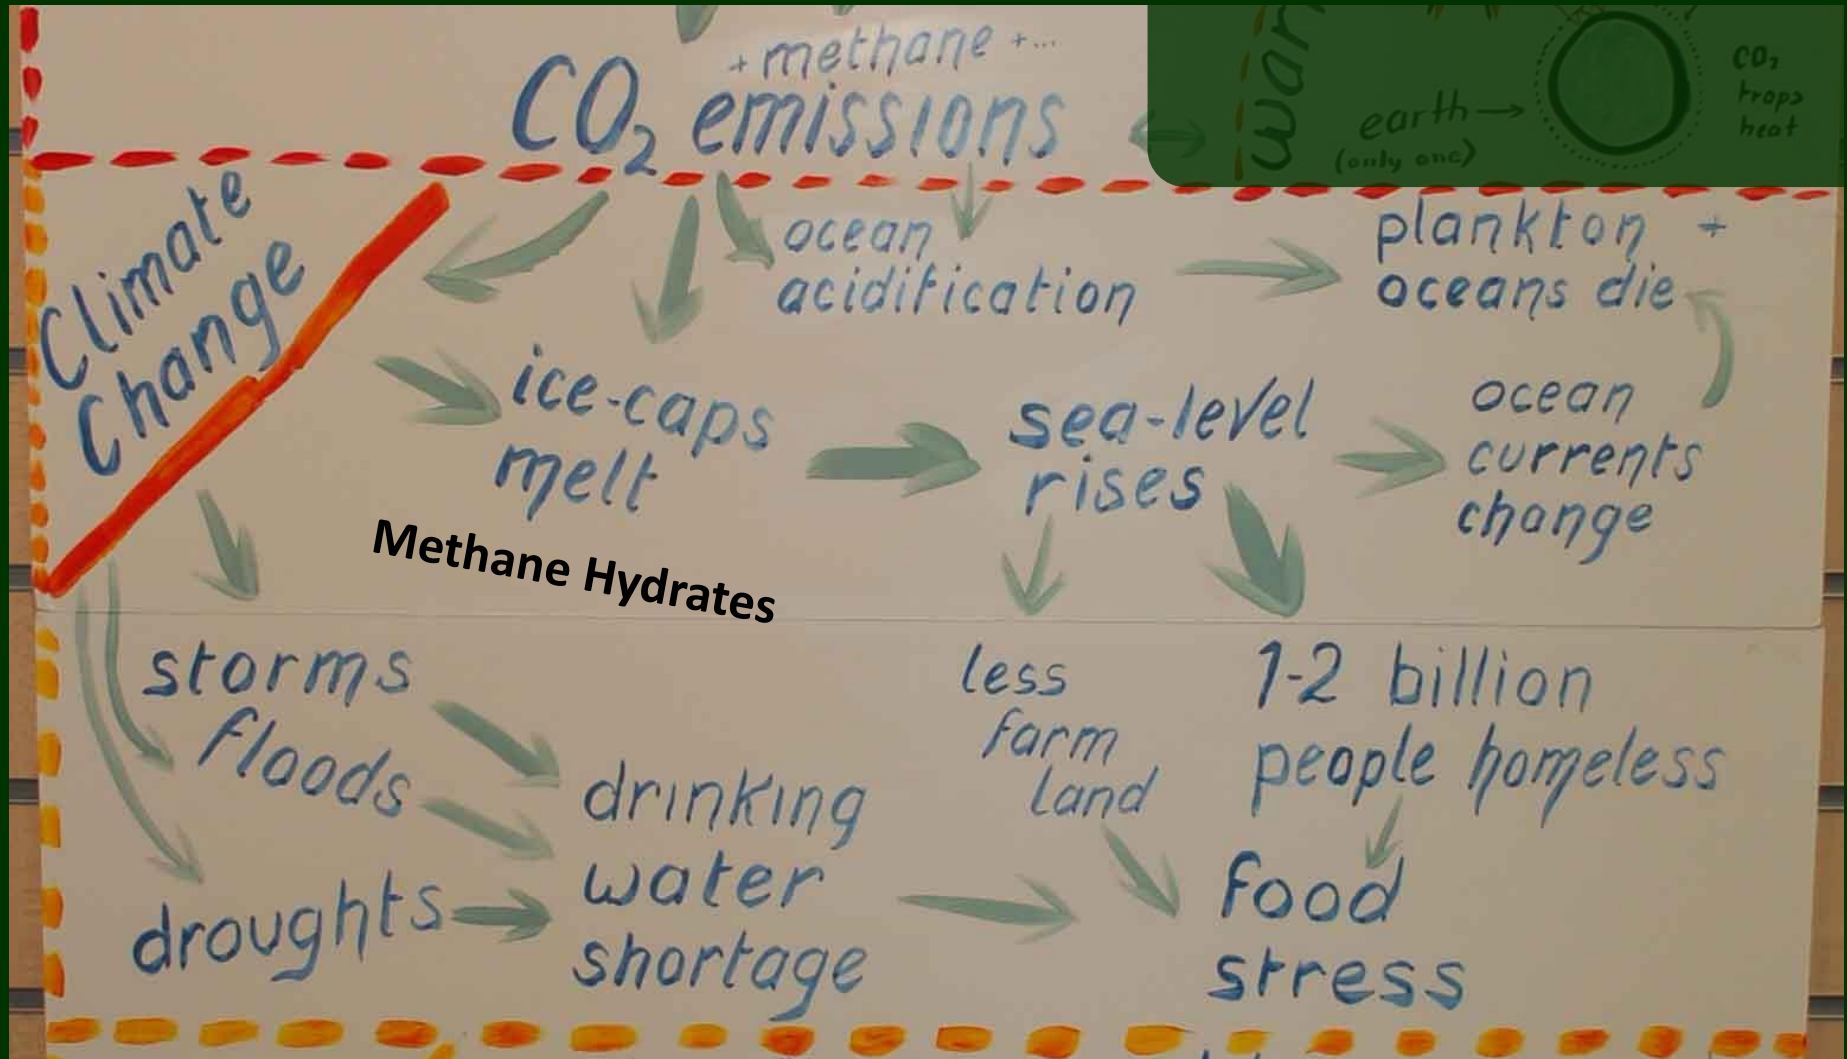 + methane +...
CO₂ emissions
earth
(only one)
CO₂
traps
heat
Climate
Change
ocean
acidification
plankton +
oceans die
ice-caps
melt
sea-level
rises
ocean
currents
change
Methane Hydrates
storms
floods
droughts
drinking
water
shortage
less
farm
land
1-2 billion
people homeless
food
stress